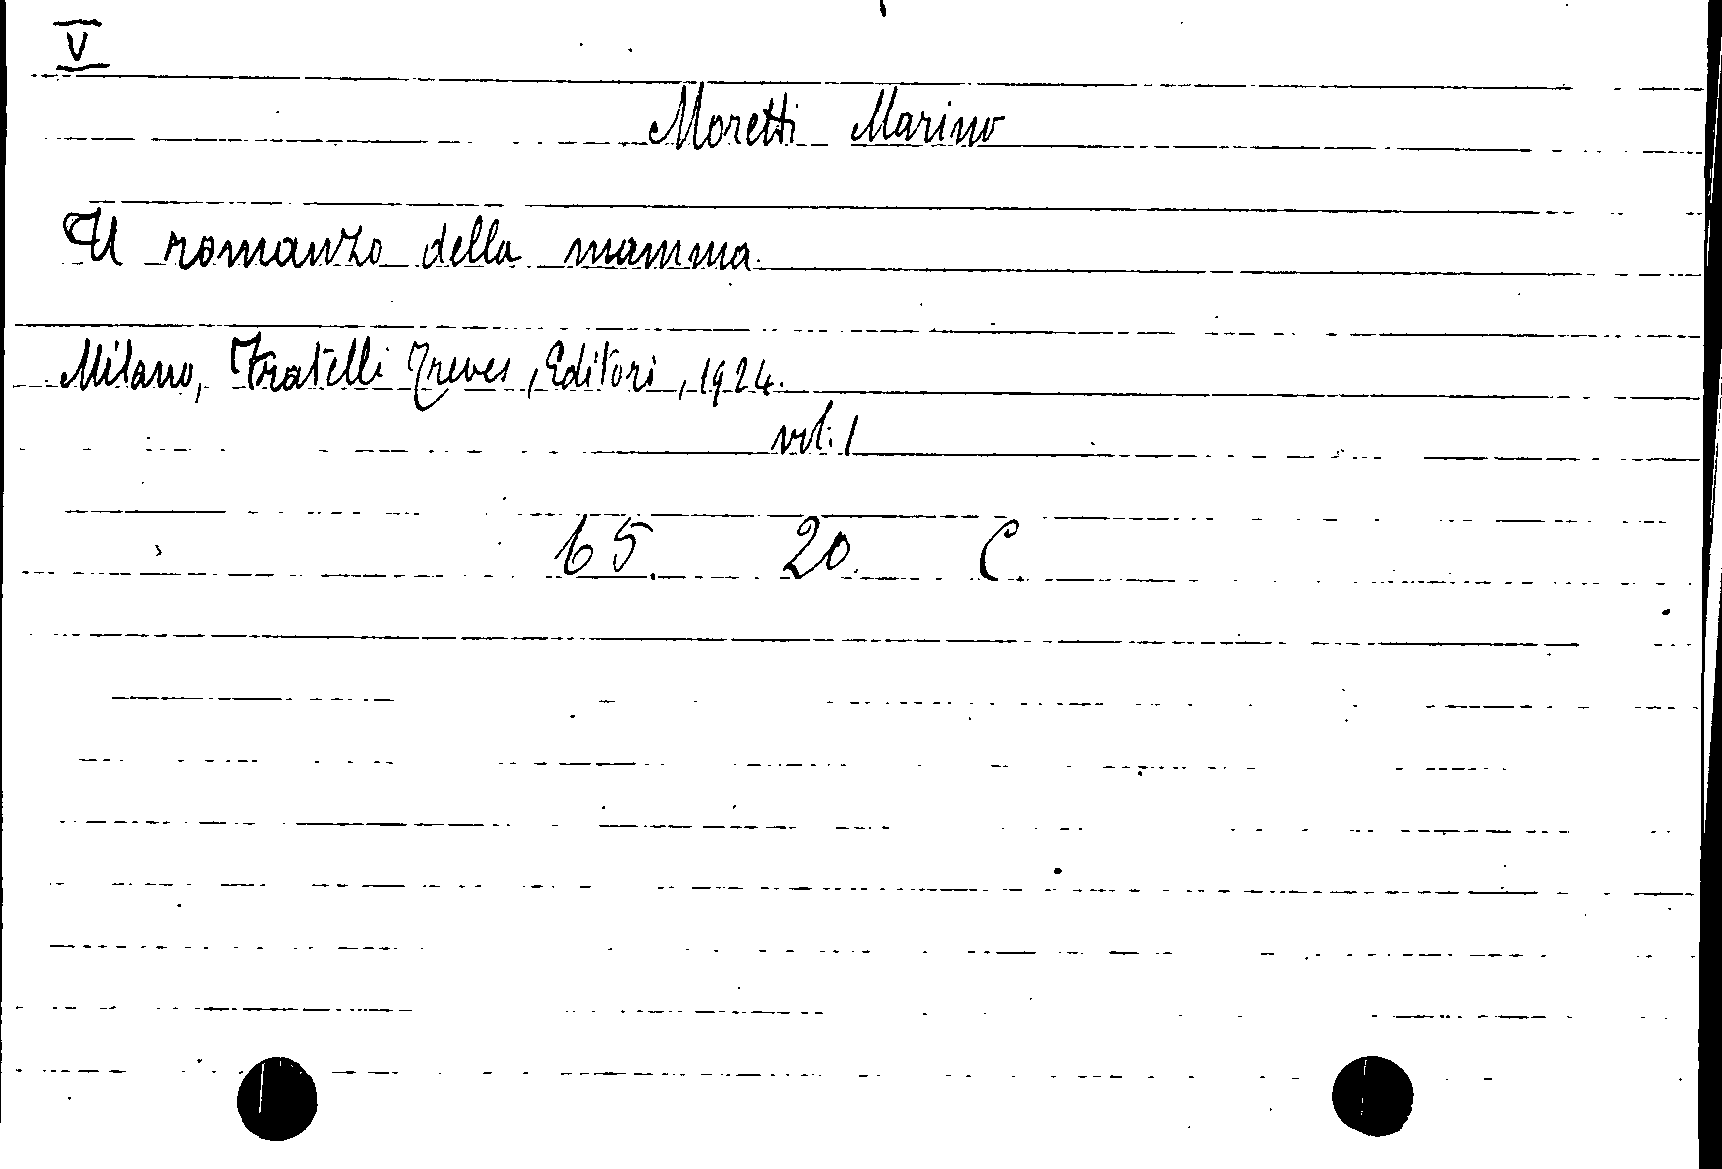 V
Moretti Marino
Il romanzo della mamma.
Milano, Fratelli Treves, Editori, 1924.
vol. 1
65. 20. C.